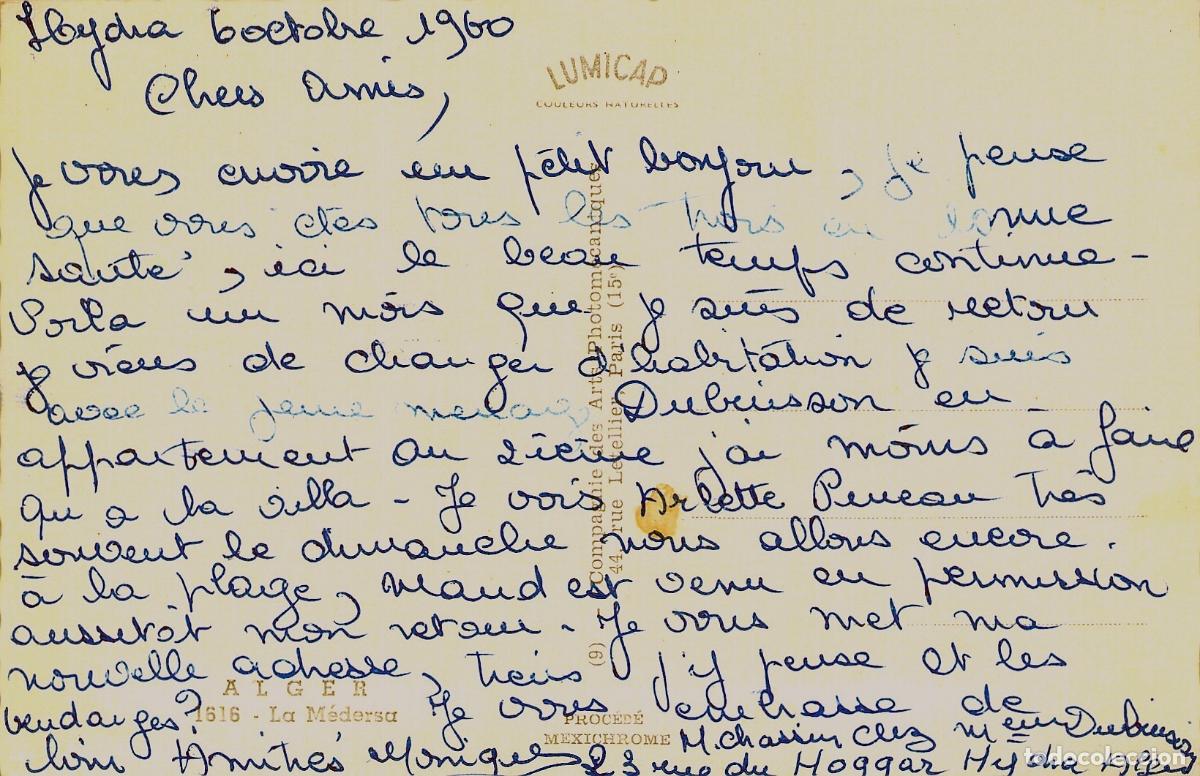 Hydra 6 octobre 1960
Chers Amis,
LUMICAP
COULEURS NATURELLES
je vous envoie un pétit bonjour, je pense
que vous étes tous les trois en bonne
santé, ici le beau temps continue -
Voila un mois que je suis de retour
je viens de changer d'habitation je suis
avec le jeune menage Dubuisson en
appartement au 2ieme j'ai moins a faire
qu'a la villa - Je vois Arlette Puneau très
souvent le dimanche nous allons encore.
à la plage, Maud est venu en permission
aussitôt mon retour. Je vous met ma
nouvelle adresse, tiens j'y pense et les
vendanges? Je vous embrasse de
loin Amitiés Monique M. chassin chez Meme Dubuisson
23 rue du Hoggar Hydra
(9) Compagnie des Arts Photomécaniques
44, rue Letellier, Paris (15e)
ALGER
1616 - La Médersa
PROCÉDÉ
MEXICHROME
todocoleccion